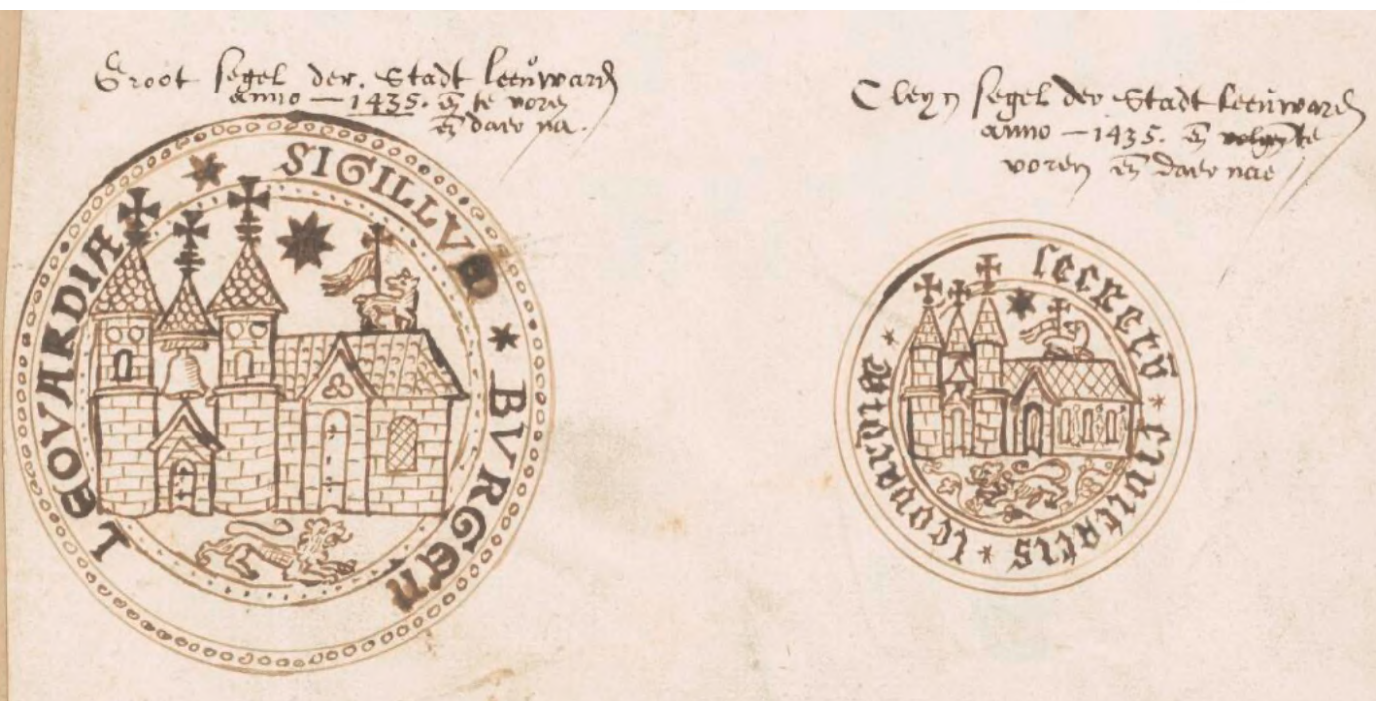 Groot segel der. Stadt leeuward
anno — 1435. en te voren
en daer na.
SIGILLVM * BVRGEN
LEOVARDIA *
Cleyn segel der Stadt leeuward
anno — 1435. en te
voren en daer nae
secretu * civitatis * leovardiae *